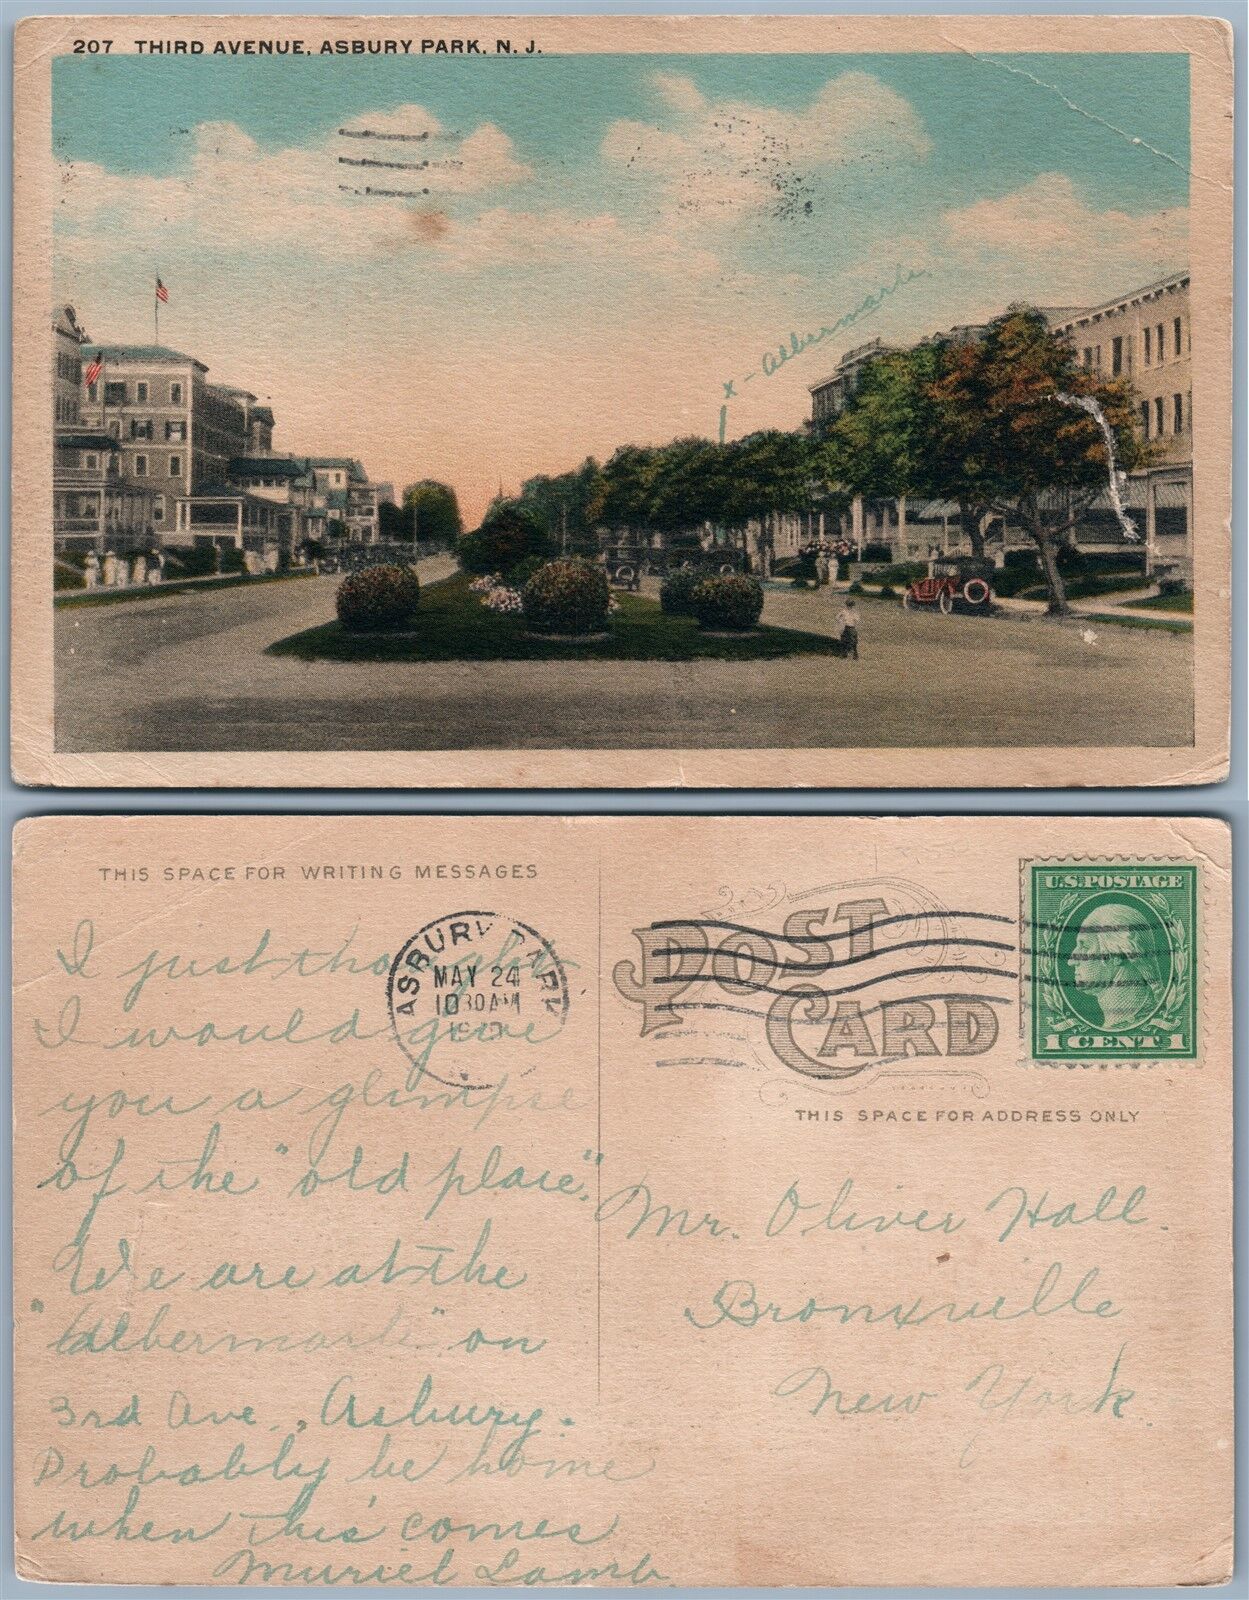 207 THIRD AVENUE, ASBURY PARK, N. J.
x - Albermarle.
THIS SPACE FOR WRITING MESSAGES
I just thought
I would give
you a glimpse
of the "old place".
We are at the
"Albermarle" on
3rd Ave., Asbury.
Probably be home
when this comes
Muriel Lamb.
ASBURY PARK
MAY 24
1030AM
POST
CARD
U.S. POSTAGE
1 CENT 1
THIS SPACE FOR ADDRESS ONLY
Mr. Oliver Hall.
Bronxville
New York.